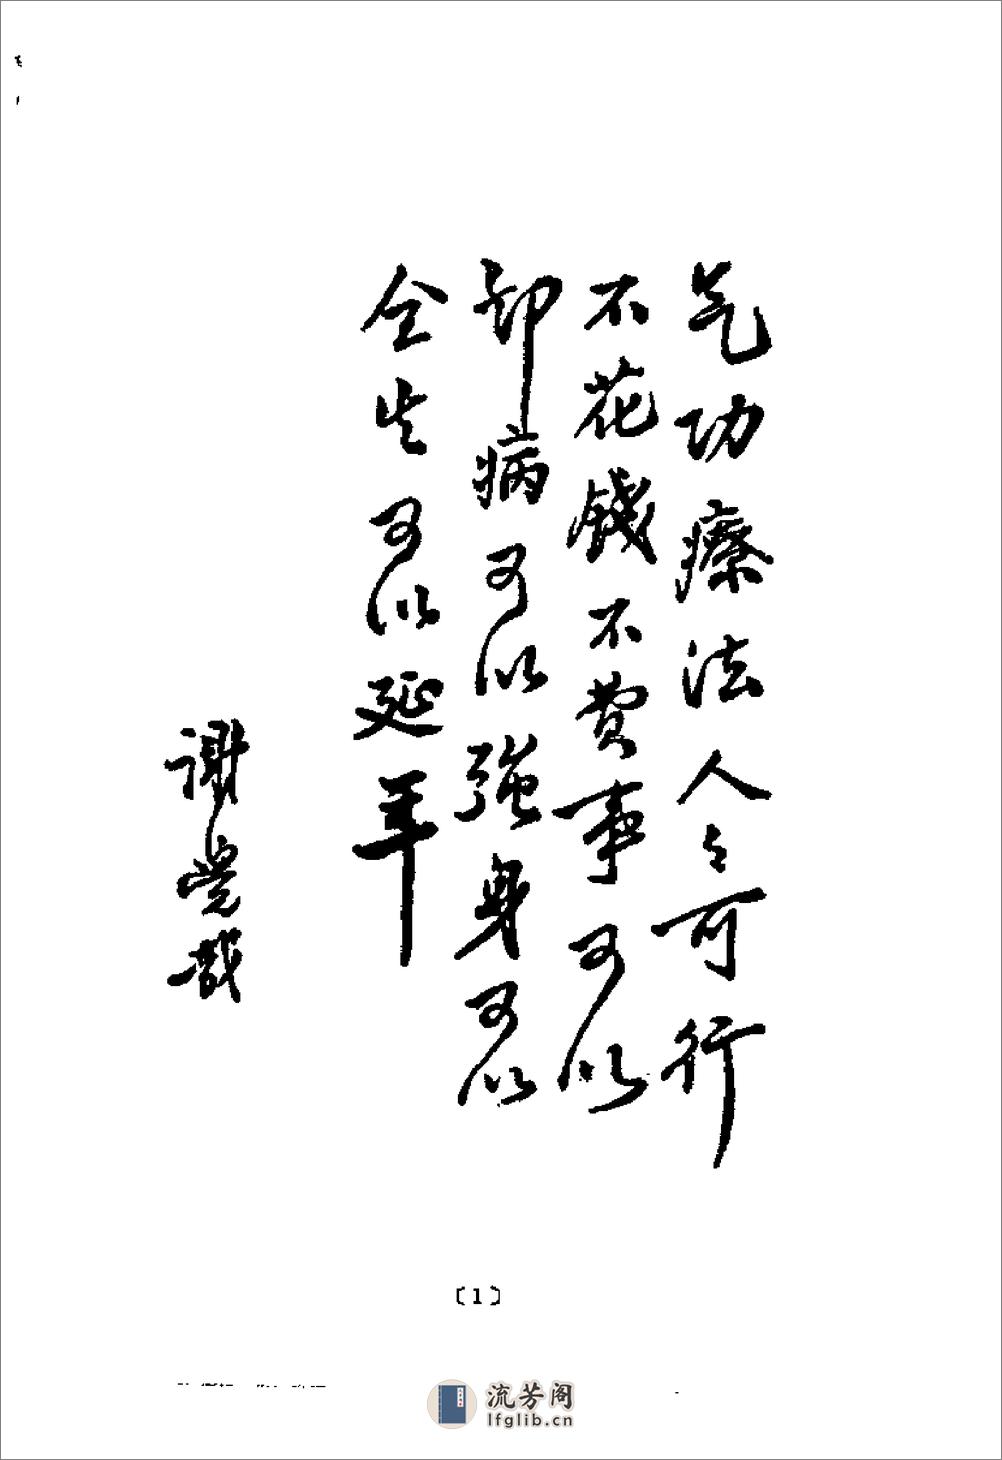 气功療法人々可行
不花錢不費事可以
却病可以強身可以
全生可以延年
謝覺哉
〔1〕
流芳阁
lfglib.cn